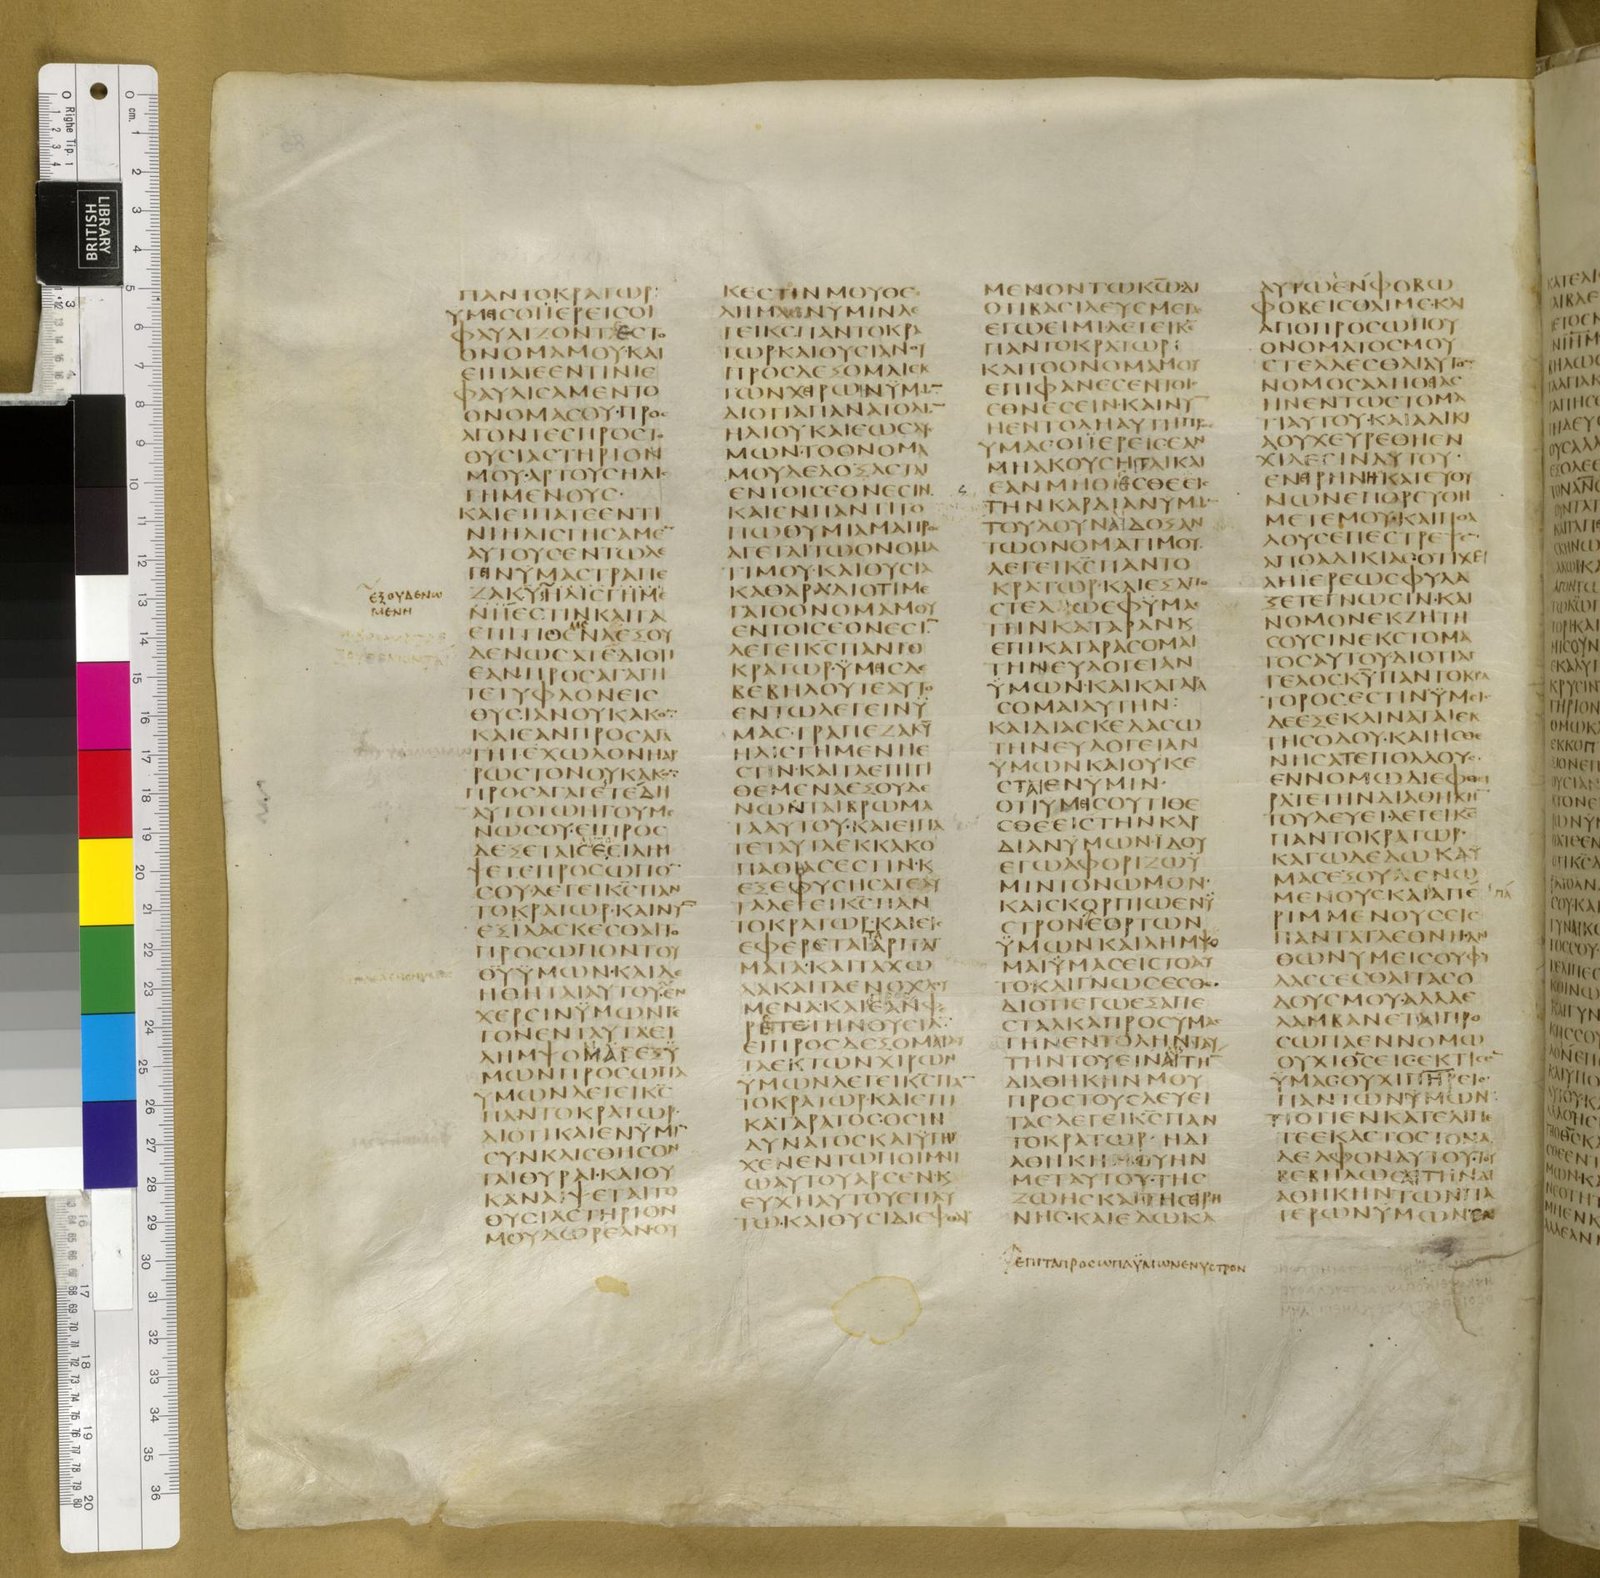 ΠΑΝΤΟΚΡΑΤΩΡ·
ΥΜΕΙϹΟΙΪΕΡΕΙϹΟΙ
ΦΑΥΛΙΖΟΝΤΕϹΤΟ
ΟΝΟΜΑΜΟΥ·ΚΑΙ
ΕΙΠΑΤΕΕΝΤΙΝΙΕ
ΦΑΥΛΙϹΑΜΕΝΤΟ
ΟΝΟΜΑϹΟΥ·ΠΡΟϹ
ΑΓΟΝΤΕϹΠΡΟϹΤΟ
ΘΥϹΙΑϹΤΗΡΙΟΝ
ΜΟΥ·ΑΡΤΟΥϹΗΛΙϹ
ΓΗΜΕΝΟΥϹ·
ΚΑΙΕΙΠΑΤΕΕΝΤΙ
ΝΙΗΛΙϹΓΗϹΑΜΕ̅
ΑΥΤΟΥϹΕΝΤΩΛΕ
ΓΙΝΥΜΑϹΤΡΑΠΕ
ΖΑΚΥ̅ΗΛΙϹΓΗΜΕ
ΝΗΕϹΤΙΝΚΑΙΤΑ
ΕΠΙΤΙΘΕΝΑΕΞΟΥ
ΔΕΝΩϹΑΤΕΔΙΟΤΙ
ΕΑΝΠΡΟϹΑΓΑΓΗ
ΤΕΤΥΦΛΟΝΕΙϹ
ΘΥϹΙΑΝΟΥΚΑΚΟ̅
ΚΑΙΕΑΝΠΡΟϹΑΓΑ
ΓΗΤΕΧΩΛΟΝΗΑΡ
ΡΩϹΤΟΝΟΥΚΑΚΟ̅
ΠΡΟϹΑΓΑΓΕΤΕΔΗ
ΑΥΤΟΤΩΗΓΟΥΜΕ
ΝΩϹΟΥ·ΕΙΠΡΟϹ
ΔΕΞΕΤΑΙϹΕϹΙΛΗΜ
ΨΕΤΕΠΡΟϹΩΠΟ̅
ϹΟΥΛΕΓΕΙΚϹ̅ΠΑΝ
ΤΟΚΡΑΤΩΡ·ΚΑΙΝΥ̅
ΕΞΙΛΑϹΚΕϹΘΑΙΤΟ
ΠΡΟϹΩΠΟΝΤΟΥ
ΘΥ̅ΥΜΩΝ·ΚΑΙΔΕ
ΗΘΗΤΑΙΑΥΤΟΥ·ΕΝ
ΧΕΡϹΙΝΫΜΩΝΓΕ
ΓΟΝΕΝΤΑΥΤΑΕΙ
ΛΗΜΨΟΜΑΙΕΞΫ
ΜΩΝΠΡΟϹΩΠΑ
ΥΜΩΝΛΕΓΕΙΚϹ̅
ΠΑΝΤΟΚΡΑΤΩΡ·
ΔΙΟΤΙΚΑΙΕΝΫΜΙ̅
ϹΥΝΚΛΙϹΘΗϹΟΝ
ΤΑΙΘΥΡΑΙ·ΚΑΙΟΥ
ΚΑΝΑΨΕΤΑΙΤΟ
ΘΥϹΙΑϹΤΗΡΙΟΝ
ΜΟΥΔΩΡΕΑΝΟΥ
ΕΞΟΥΔΕΝΩ
ΜΕΝΗ
ΚΕϹΤΙΝΜΟΥΘΕ
ΛΗΜΑΕΝΥΜΙΝΛΕ
ΓΕΙΚϹ̅ΠΑΝΤΟΚΡΑ
ΤΩΡΚΑΙΘΥϹΙΑΝΟΥ
ΠΡΟϹΔΕΞΟΜΑΙΕΚ
ΤΩΝΧΕΙΡΩΝΫΜΩ̅
ΔΙΟΤΙΑΠΑΝΑΤΟΛΩ̅
ΗΛΙΟΥΚΑΙΕΩϹΔΥϹ
ΜΩΝ·ΤΟΟΝΟΜΑ
ΜΟΥΔΕΔΟΞΑϹΤΑΙ
ΕΝΤΟΙϹΕΘΝΕϹΙΝ·
ΚΑΙΕΝΠΑΝΤΙΤΟ
ΠΩΘΥΜΙΑΜΑΠΡΟϹ
ΑΓΕΤΑΙΤΩΟΝΟΜΑ
ΤΙΜΟΥ·ΚΑΙΘΥϹΙΑ
ΚΑΘΑΡΑ·ΔΙΟΤΙΜΕ
ΓΑΤΟΟΝΟΜΑΜΟΥ
ΕΝΤΟΙϹΕΘΝΕϹΙ̅
ΛΕΓΕΙΚϹ̅ΠΑΝΤΟ
ΚΡΑΤΩΡ·ΫΜΕΙϹΔΕ
ΒΕΒΗΛΟΥΤΕΑΥΤΟ
ΕΝΤΩΛΕΓΕΙΝΫ
ΜΑϹ·ΤΡΑΠΕΖΑΚΥ̅
ΗΛΙϹΓΗΜΕΝΗΕ
ϹΤΙΝ·ΚΑΙΤΑΕΠΙΤΙ
ΘΕΜΕΝΑΕΞΟΥΔΕ
ΝΩΝΤΑΙΒΡΩΜΑ
ΤΑΑΥΤΟΥ·ΚΑΙΕΙΠΑ
ΤΕΤΑΥΤΑΕΚΚΑΚΟ
ΠΑΘΙΑϹΕϹΤΙΝ·Κ
ΕΞΕΦΥϹΗϹΑΤΕΑΥ
ΤΑΛΕΓΕΙΚϹ̅ΠΑΝ
ΤΟΚΡΑΤΩΡ·ΚΑΙΕΙϹ
ΕΦΕΡΕΤΑΙΑΡΠΑΓ
ΜΑΤΑ·ΚΑΙΤΑΧΩ
ΛΑΚΑΙΤΑΕΝΟΧΛΟΥ
ΜΕΝΑ·ΚΑΙΕΑΝΦΕ
ΡΗΤΕΤΗΝΘΥϹΙΑ̅·
ΕΙΠΡΟϹΔΕΞΟΜΑΙΑΥ
ΤΑΕΚΤΩΝΧΙΡΩΝ
ΫΜΩΝΛΕΓΕΙΚϹ̅ΠΑ̅
ΤΟΚΡΑΤΩΡ·ΚΑΙΕΠΙ
ΚΑΤΑΡΑΤΟϹ·ΟϹΗΝ
ΔΥΝΑΤΟϹΚΑΙΫΠΗΡ
ΧΕΝΕΝΤΩΠΟΙΜΝΙ
ΩΑΥΤΟΥΑΡϹΕΝΚ
ΕΥΧΗΑΥΤΟΥΕΠΑΥ
ΤΩ·ΚΑΙΘΥϹΙΔΙΕΦΘΑΡ
ΜΕΝΟΝΤΩΚΩ̅·ΔΙ
ΟΤΙΒΑϹΙΛΕΥϹΜΕΓΑϹ
ΕΓΩΕΙΜΙΛΕΓΕΙΚϹ̅
ΠΑΝΤΟΚΡΑΤΩΡ·
ΚΑΙΤΟΟΝΟΜΑΜΟΥ
ΕΠΙΦΑΝΕϹΕΝΤΟΙϹ
ΕΘΝΕϹΕΙΝ·ΚΑΙΝΥ̅
ΗΕΝΤΟΛΗΑΥΤΗΠΡΟϹ
ΥΜΑϹΟΙΪΕΡΕΙϹΕΑΝ
ΜΗΑΚΟΥϹΗΤΑΙΚΑΙ
ΕΑΝΜΗΘΗϹΘΕΕΙϹ
ΤΗΝΚΑΡΔΙΑΝΥΜΩ̅
ΤΟΥΔΟΥΝΑΙΔΟΞΑΝ
ΤΩΟΝΟΜΑΤΙΜΟΥ
ΛΕΓΕΙΚϹ̅ΠΑΝΤΟ
ΚΡΑΤΩΡ·ΚΑΙΕΞΑΠΟ
ϹΤΕΛΩΕΦΫΜΑϹ
ΤΗΝΚΑΤΑΡΑΝΚ
ΕΠΙΚΑΤΑΡΑϹΟΜΑΙ
ΤΗΝΕΥΛΟΓΕΙΑΝ
ΫΜΩΝ·ΚΑΙΚΑΤΑΡΑ
ϹΟΜΑΙΑΥΤΗΝ·
ΚΑΙΔΙΑϹΚΕΔΑϹΩ
ΤΗΝΕΥΛΟΓΕΙΑΝ
ΫΜΩΝΚΑΙΟΥΚΕ
ϹΤΑΙΕΝΥΜΙΝ·
ΟΤΙΥΜΕΙϹΟΥΤΙΘΕ
ϹΘΕΕΙϹΤΗΝΚΑΡ
ΔΙΑΝΥΜΩΝ·ΪΔΟΥ
ΕΓΩΑΦΟΡΙΖΩΫ
ΜΙΝΤΟΝΩΜΟΝ·
ΚΑΙϹΚΟΡΠΙΩΕΝΥ
ϹΤΡΟΝΕΟΡΤΩΝ
ΫΜΩΝΚΑΙΛΗΜΨΟ
ΜΑΙΫΜΑϹΕΙϹΤΟΑΥ
ΤΟ·ΚΑΙΓΝΩϹΕϹΘΕ·
ΔΙΟΤΙΕΓΩΕΞΑΠΕ
ϹΤΑΛΚΑΠΡΟϹΥΜΑϹ
ΤΗΝΕΝΤΟΛΗΝΤΑΥ
ΤΗΝΤΟΥΕΙΝΑΙΤΗ̅
ΔΙΑΘΗΚΗΝΜΟΥ
ΠΡΟϹΤΟΥϹΛΕΥΕΙ
ΤΑϹΛΕΓΕΙΚϹ̅ΠΑΝ
ΤΟΚΡΑΤΩΡ·ΗΔΙ
ΑΘΗΚΗΜΟΥΗΝ
ΜΕΤΑΥΤΟΥ·ΤΗϹ
ΖΩΗϹΚΑΙΤΗϹΕΙΡΗ
ΝΗϹ·ΚΑΙΕΔΩΚΑ
ΕΠΙΤΑΠΡΟϹΩΠΑΫΜΩΝΕΝΥϹΤΡΟΝ
ΑΥΤΩΕΝΦΟΒΩ
ΦΟΒΕΙϹΘΑΙΜΕ·ΚΑΙ
ΑΠΟΠΡΟϹΩΠΟΥ
ΟΝΟΜΑΤΟϹΜΟΥ
ϹΤΕΛΛΕϹΘΑΙΑΥΤΟ̅
ΝΟΜΟϹΑΛΗΘΙΑϹ
ΗΝΕΝΤΩϹΤΟΜΑ
ΤΙΑΥΤΟΥ·ΚΑΙΑΔΙΚΙ
ΑΟΥΧΕΥΡΕΘΗΕΝ
ΧΙΛΕϹΙΝΑΥΤΟΥ·
ΕΝΕΙΡΗΝΗΚΑΤΕΥΘΥ
ΝΩΝΕΠΟΡΕΥΘΗ
ΜΕΤΕΜΟΥ·ΚΑΙΠΟΛ
ΛΟΥϹΕΠΕϹΤΡΕΨΕ̅
ΑΠΟΑΔΙΚΙΑϹΟΤΙΧΕΙ
ΛΗΙΕΡΕΩϹΦΥΛΑ
ΞΕΤΕΓΝΩϹΙΝ·ΚΑΙ
ΝΟΜΟΝΕΚΖΗΤΗ
ϹΟΥϹΙΝΕΚϹΤΟΜΑ
ΤΟϹΑΥΤΟΥΔΙΟΤΙΑΓ
ΓΕΛΟϹΚΥ̅ΠΑΝΤΟΚΡΑ
ΤΟΡΟϹΕϹΤΙΝΫΜΕΙϹ
ΔΕΕΞΕΚΛΙΝΑΤΑΙΕΚ
ΤΗϹΟΔΟΥ·ΚΑΙΗϹΘΕ
ΝΗϹΑΤΕΠΟΛΛΟΥϹ·
ΕΝΝΟΜΩΔΙΕΦΘΕΙ
ΡΑΤΕΤΗΝΔΙΑΘΗΚΗ̅
ΤΟΥΛΕΥΕΙ·ΛΕΓΕΙΚϹ̅
ΠΑΝΤΟΚΡΑΤΩΡ·
ΚΑΓΩΔΕΔΩΚΑΫ
ΜΑϹΕΞΟΥΔΕΝΩ
ΜΕΝΟΥϹΚΑΙΑΠΕ
ΡΙΜΜΕΝΟΥϹΕΙϹ
ΠΑΝΤΑΤΑΕΘΝΗ·ΑΝ
ΘΩΝΥΜΕΙϹΟΥΦΥ
ΛΑϹϹΕϹΘΑΙΤΑϹΟ
ΔΟΥϹΜΟΥ·ΑΛΛΑΕ
ΛΑΜΒΑΝΕΤΑΙΠΡΟ
ϹΩΠΑΕΝΝΟΜΩ
ΟΥΧΙΘϹ̅ΕΙϹΕΚΤΙϹΕ̅
ΫΜΑϹΟΥΧΙΠΗΡΕΙϹ
ΠΑΝΤΩΝΫΜΩΝ·
ΤΙΟΤΙΕΝΚΑΤΕΛΙΠΕ
ΤΕΕΚΑϹΤΟϹΤΟΝΑ
ΔΕΛΦΟΝΑΥΤΟΥ·ΤΟΥ
ΒΕΒΗΛΩϹΑΙΤΗΝΔΙ
ΑΘΗΚΗΝ·ΤΩΝΠΑ
ΤΕΡΩΝΥΜΩΝ·ΕΝ